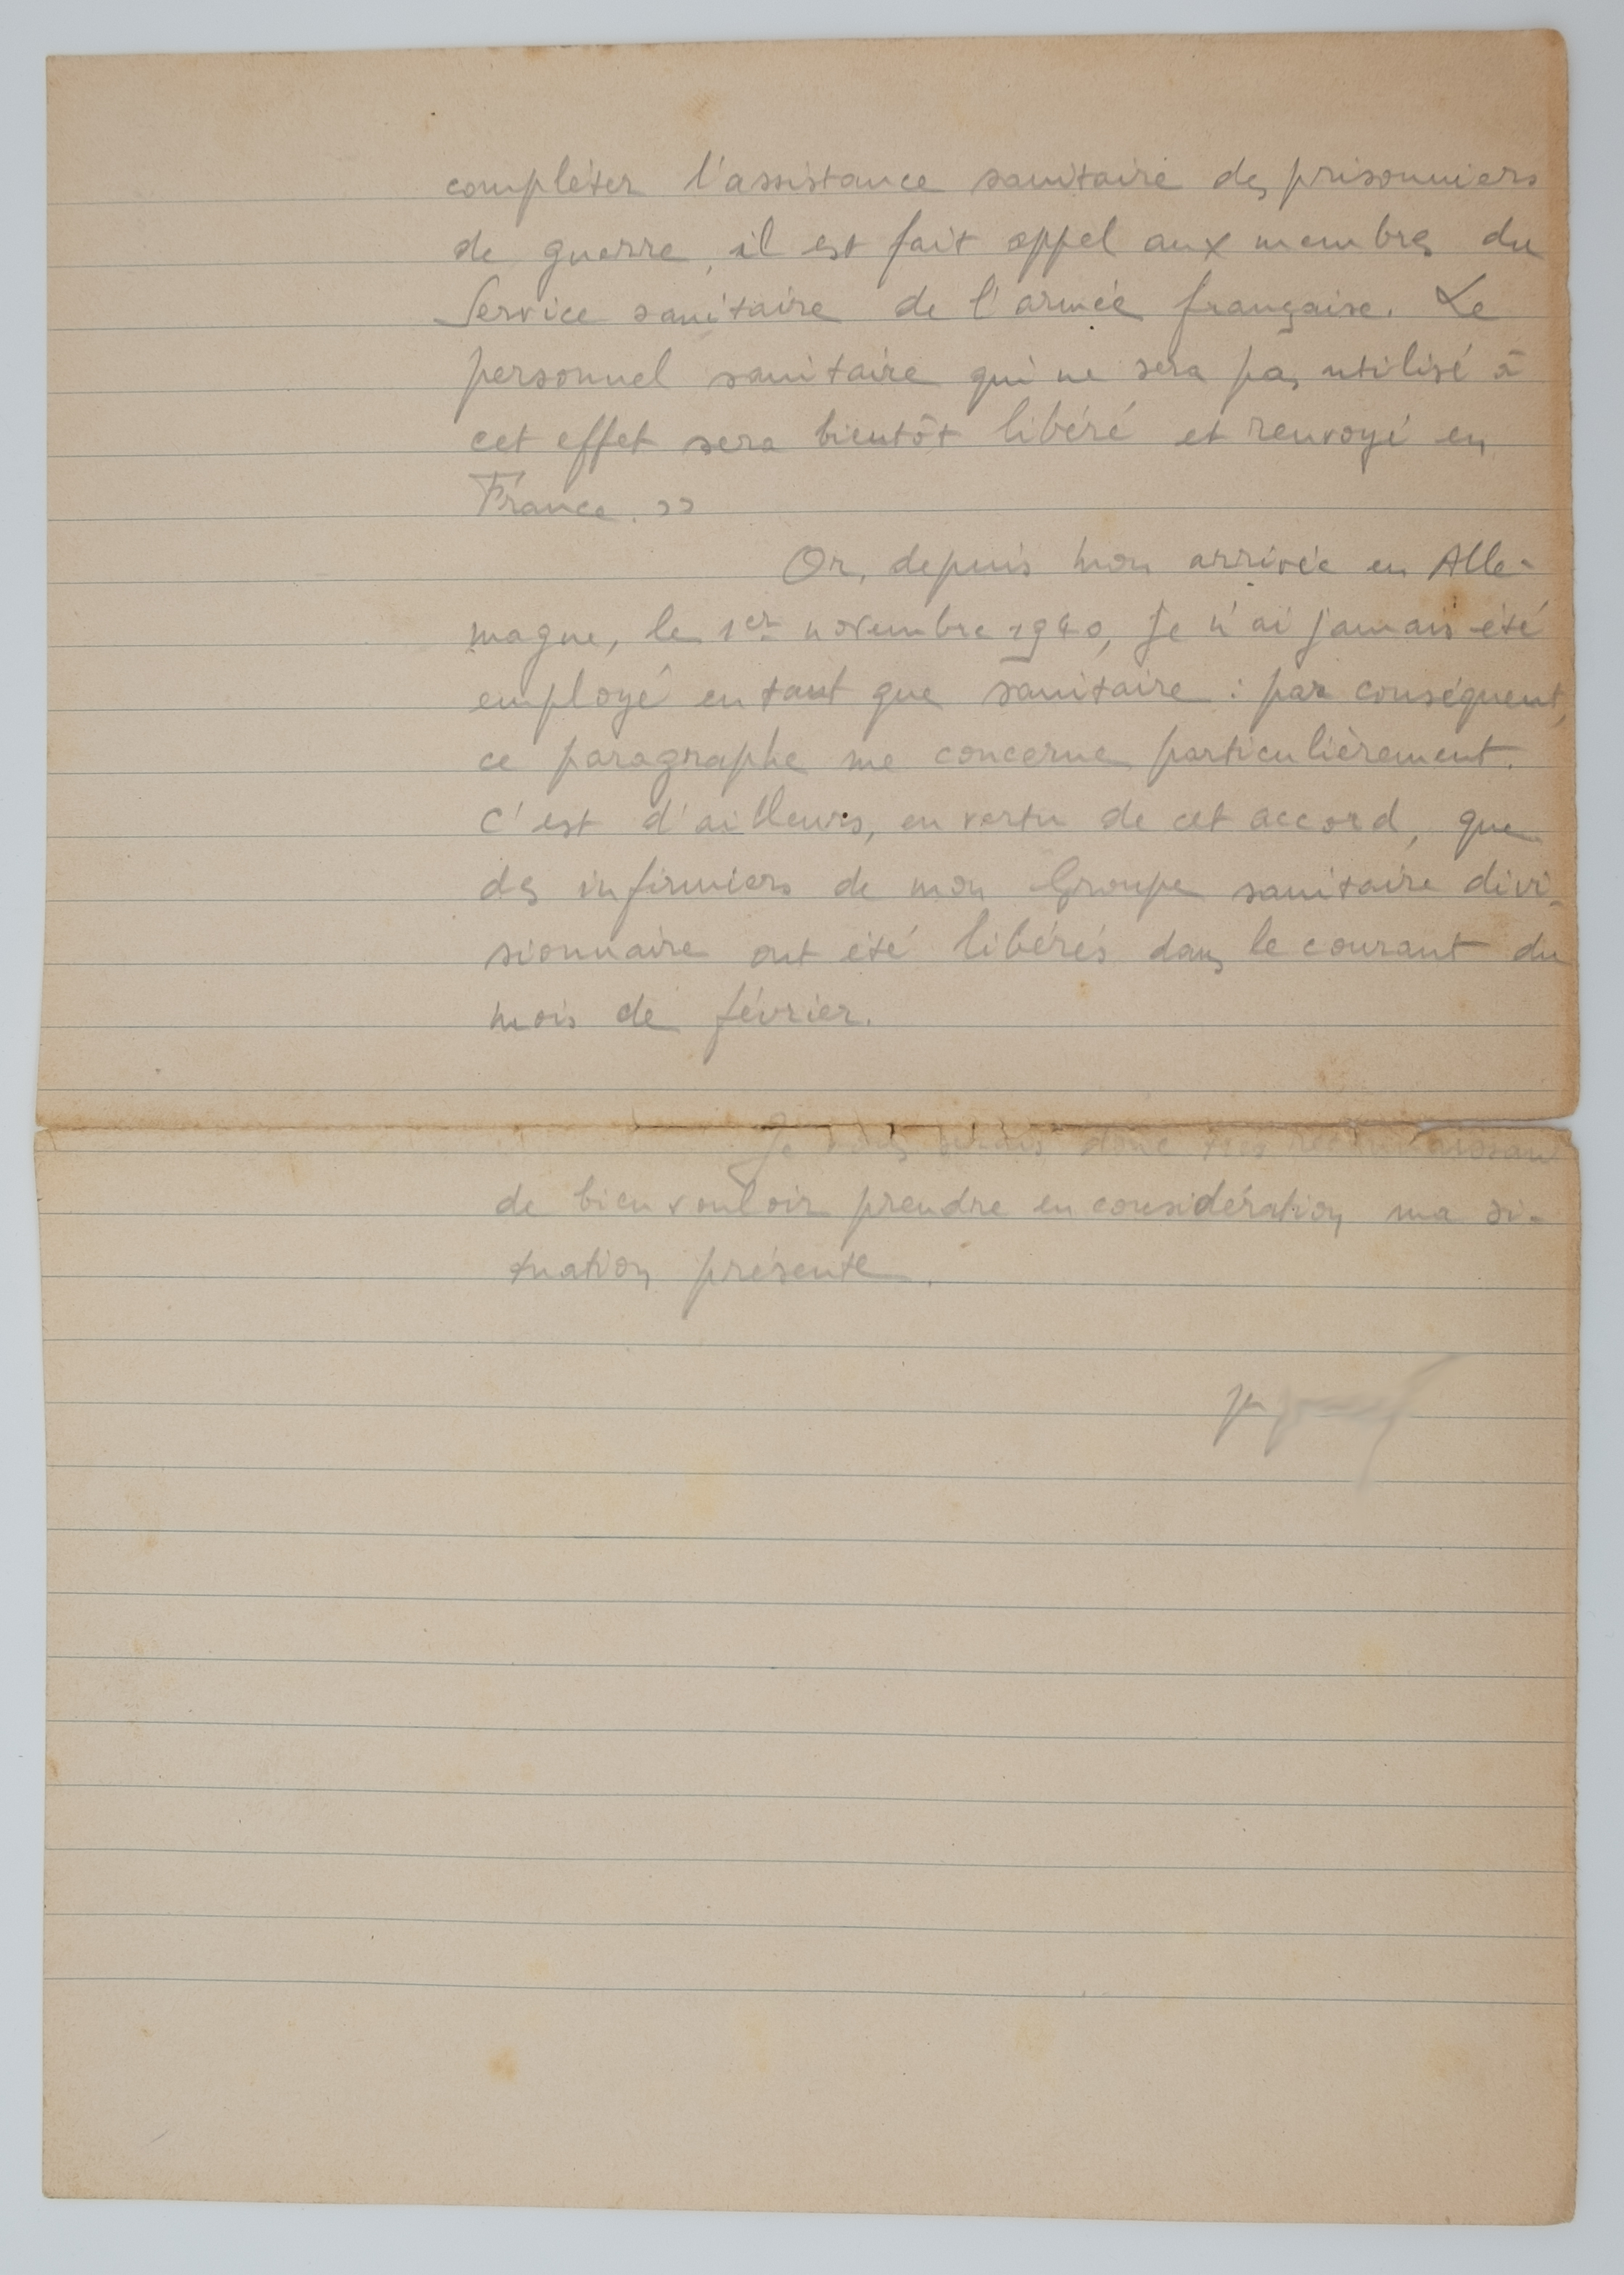 compléter l'assistance sanitaire des prisonniers
de guerre, il est fait appel aux membres du
Service sanitaire de l'armée française. Le
personnel sanitaire qui ne sera pas utilisé à
cet effet sera bientôt libéré et renvoyé en
France. »
Or, depuis mon arrivée en Alle-
magne, le 1er novembre 1940, je n'ai jamais été
employé en tant que sanitaire : par conséquent,
ce paragraphe me concerne particulièrement.
C'est d'ailleurs, en vertu de cet accord, que
des infirmiers de mon Groupe sanitaire divi-
sionnaire ont été libérés dans le courant du
mois de février.
Je vous serais donc très reconnaissant
de bien vouloir prendre en considération ma si-
tuation présente.